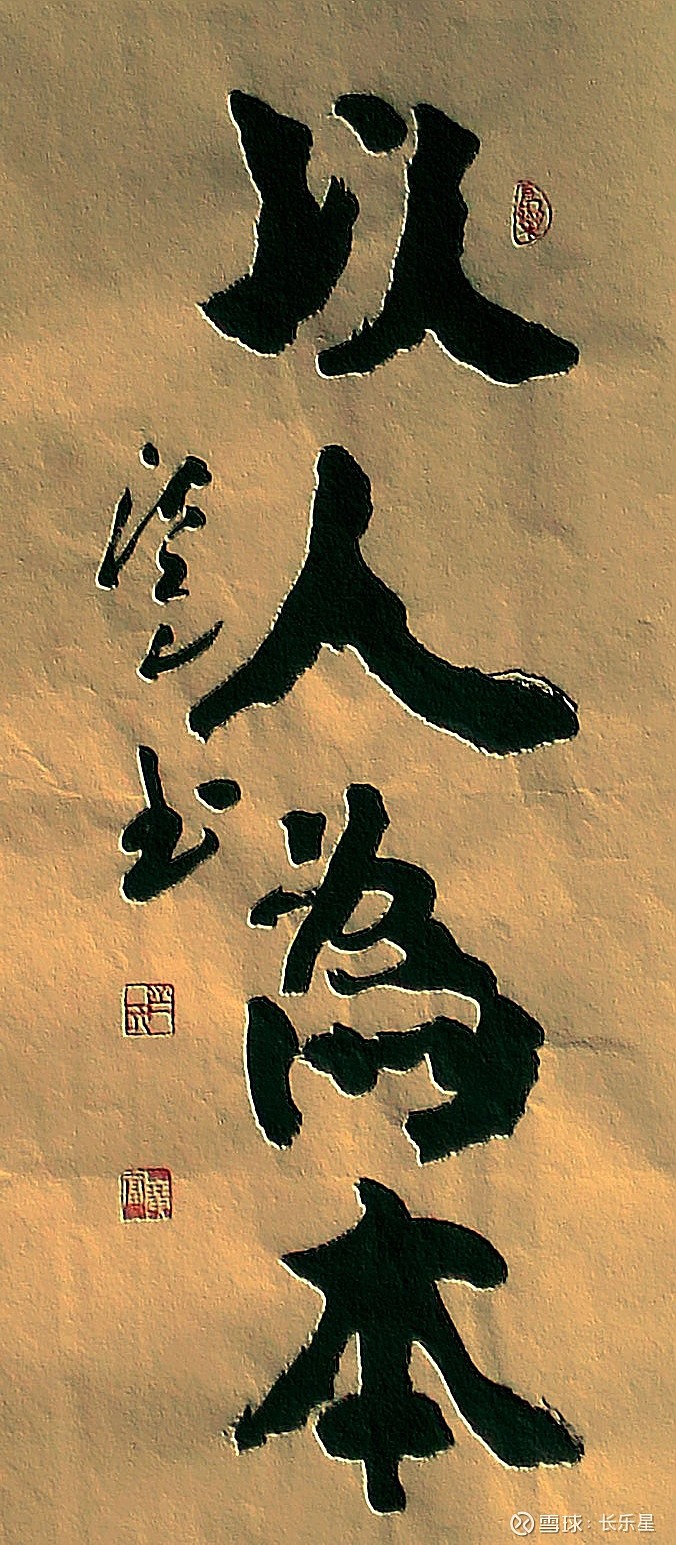 以人為本
书
雪球：长乐星